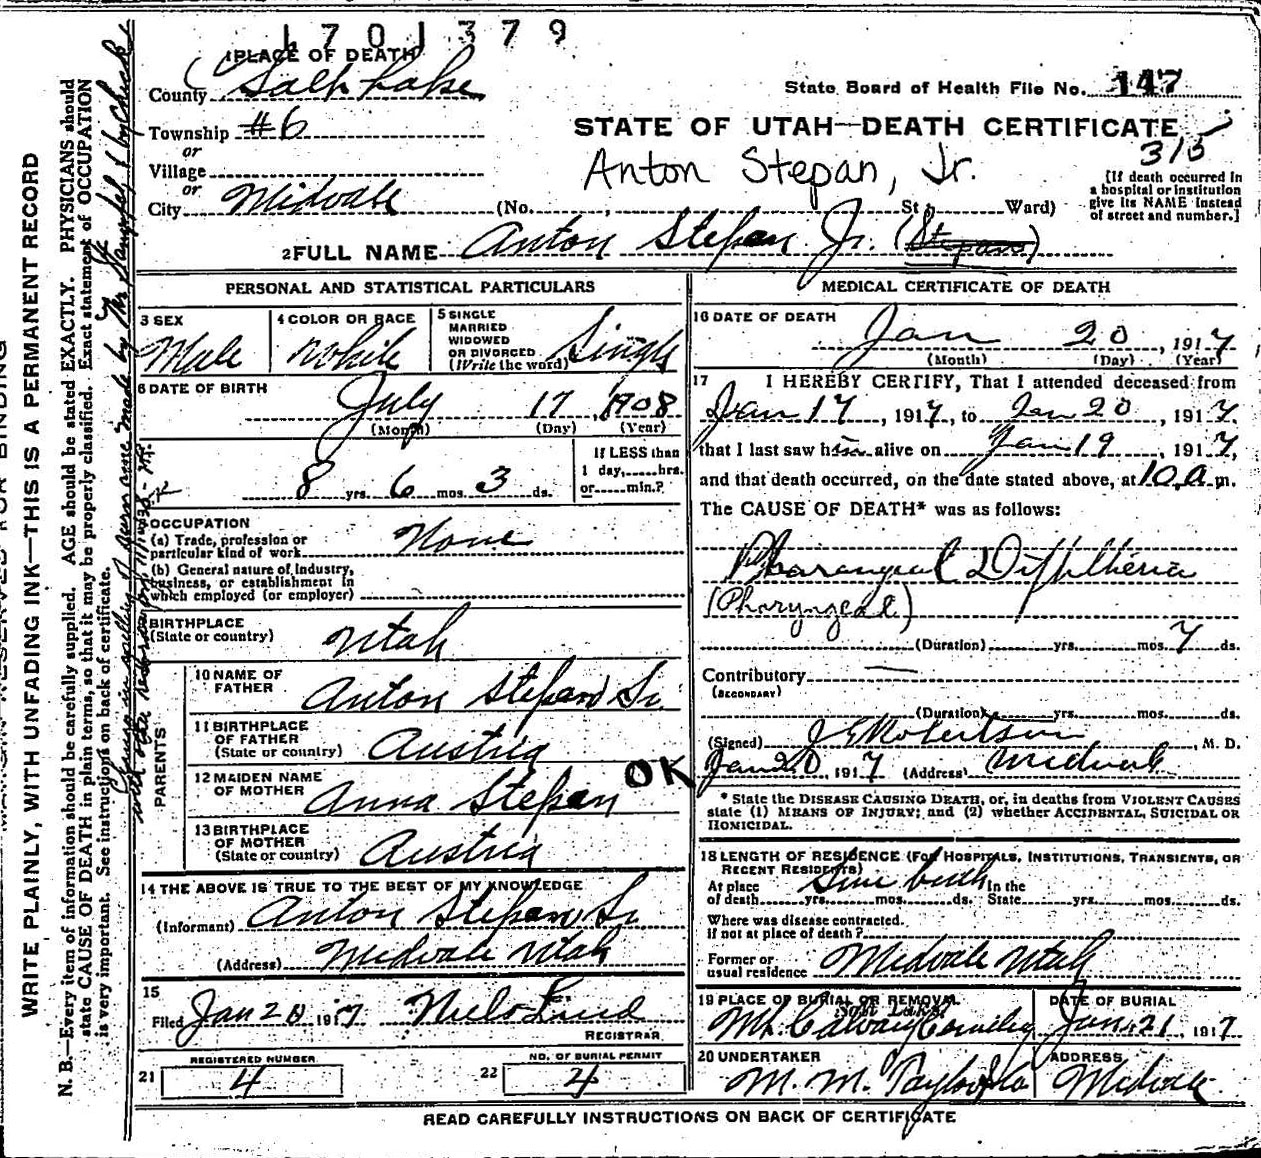 1701379
1 PLACE OF DEATH
County Salt Lake
State Board of Health File No. 147
Township #6
STATE OF UTAH—DEATH CERTIFICATE
or
315
Village
Anton Stepan, Jr.
or
City Midvale (No. , St.; Ward)
[If death occurred in
a hospital or institution
give its NAME instead
of street and number.]
2 FULL NAME Anton Stepan Jr. (Stepans)
PERSONAL AND STATISTICAL PARTICULARS
3 SEX
Male
4 COLOR OR RACE
White
5 SINGLE
MARRIED
WIDOWED
OR DIVORCED
(Write the word)
Single
6 DATE OF BIRTH
July 17, 1908
(Month) (Day) (Year)
8 yrs. 6 mos. 3 ds.
If LESS than
1 day, hrs.
or min.?
OCCUPATION
(a) Trade, profession or
particular kind of work None
(b) General nature of Industry,
business, or establishment in
which employed (or employer)
BIRTHPLACE
(State or country) Utah
PARENTS
10 NAME OF
FATHER Anton Stepan Sr.
11 BIRTHPLACE
OF FATHER
(State or country) Austria
12 MAIDEN NAME
OF MOTHER Anna Stepan
OK
13 BIRTHPLACE
OF MOTHER
(State or country) Austria
14 THE ABOVE IS TRUE TO THE BEST OF MY KNOWLEDGE
(Informant) Anton Stepan Sr
(Address) Midvale Utah
15
Filed Jan 20 1917
REGISTRAR
21 REGISTERED NUMBER
4
22 NO. OF BURIAL PERMIT
4
MEDICAL CERTIFICATE OF DEATH
16 DATE OF DEATH
Jan 20, 1917
(Month) (Day) (Year)
17 I HEREBY CERTIFY, That I attended deceased from
Jan 17, 1917, to Jan 20, 1917,
that I last saw him alive on Jan 19, 1917,
and that death occurred, on the date stated above, at 10 a m.
The CAUSE OF DEATH* was as follows:
Pharangeal Diphtheria
(Pharyngeal)
(Duration) yrs. mos. 7 ds.
Contributory —
(SECONDARY)
(Duration) yrs. mos. ds.
(Signed) J E Robertson, M. D.
Jan 20, 1917 (Address) Midvale
* State the DISEASE CAUSING DEATH, or, in deaths from VIOLENT CAUSES
state (1) MEANS OF INJURY; and (2) whether ACCIDENTAL, SUICIDAL OR
HOMICIDAL.
18 LENGTH OF RESIDENCE (FOR HOSPITALS, INSTITUTIONS, TRANSIENTS, OR
RECENT RESIDENTS)
Since birth
At place
of death yrs. mos. ds.
In the
State yrs. mos. ds.
Where was disease contracted.
If not at place of death?
Former or
usual residence Midvale Utah
19 PLACE OF BURIAL OR REMOVAL
Salt Lake
Mt. Calvary Cemetery
DATE OF BURIAL
Jan. 21 1917
20 UNDERTAKER
M. M. Taylor
ADDRESS
Midvale
READ CAREFULLY INSTRUCTIONS ON BACK OF CERTIFICATE
WRITE PLAINLY, WITH UNFADING INK—THIS IS A PERMANENT RECORD
N. B.—Every item of information should be carefully supplied. AGE should be stated EXACTLY. PHYSICIANS should
state CAUSE OF DEATH in plain terms, so that it may be properly classified. Exact statement of OCCUPATION
is very important. See instructions on back of certificate.